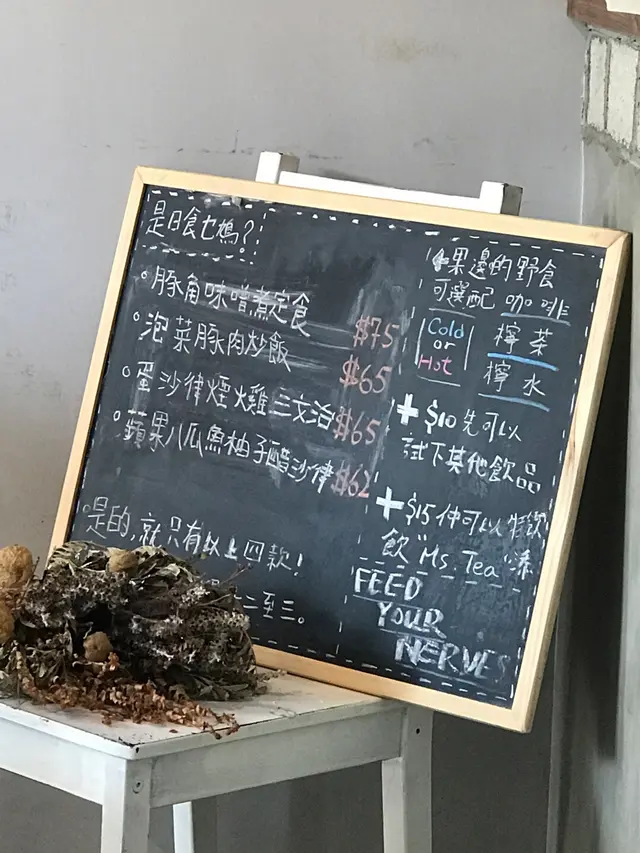 是日食乜鳩？
豚角味噌煮定食
$75
泡菜豚肉炒飯
$65
蛋沙律煙雞三文治
$65
蘋果八爪魚柚子醋沙律
$62
是的，就只有以上四款！
二至三。
果邊的野食
可選配
Cold
or
Hot
檸茶
檸水
+ $10 先可以
試下其他飲品
+ $15 仲可以
飲 "Ms. Tea"
FEED
YOUR
NERVES